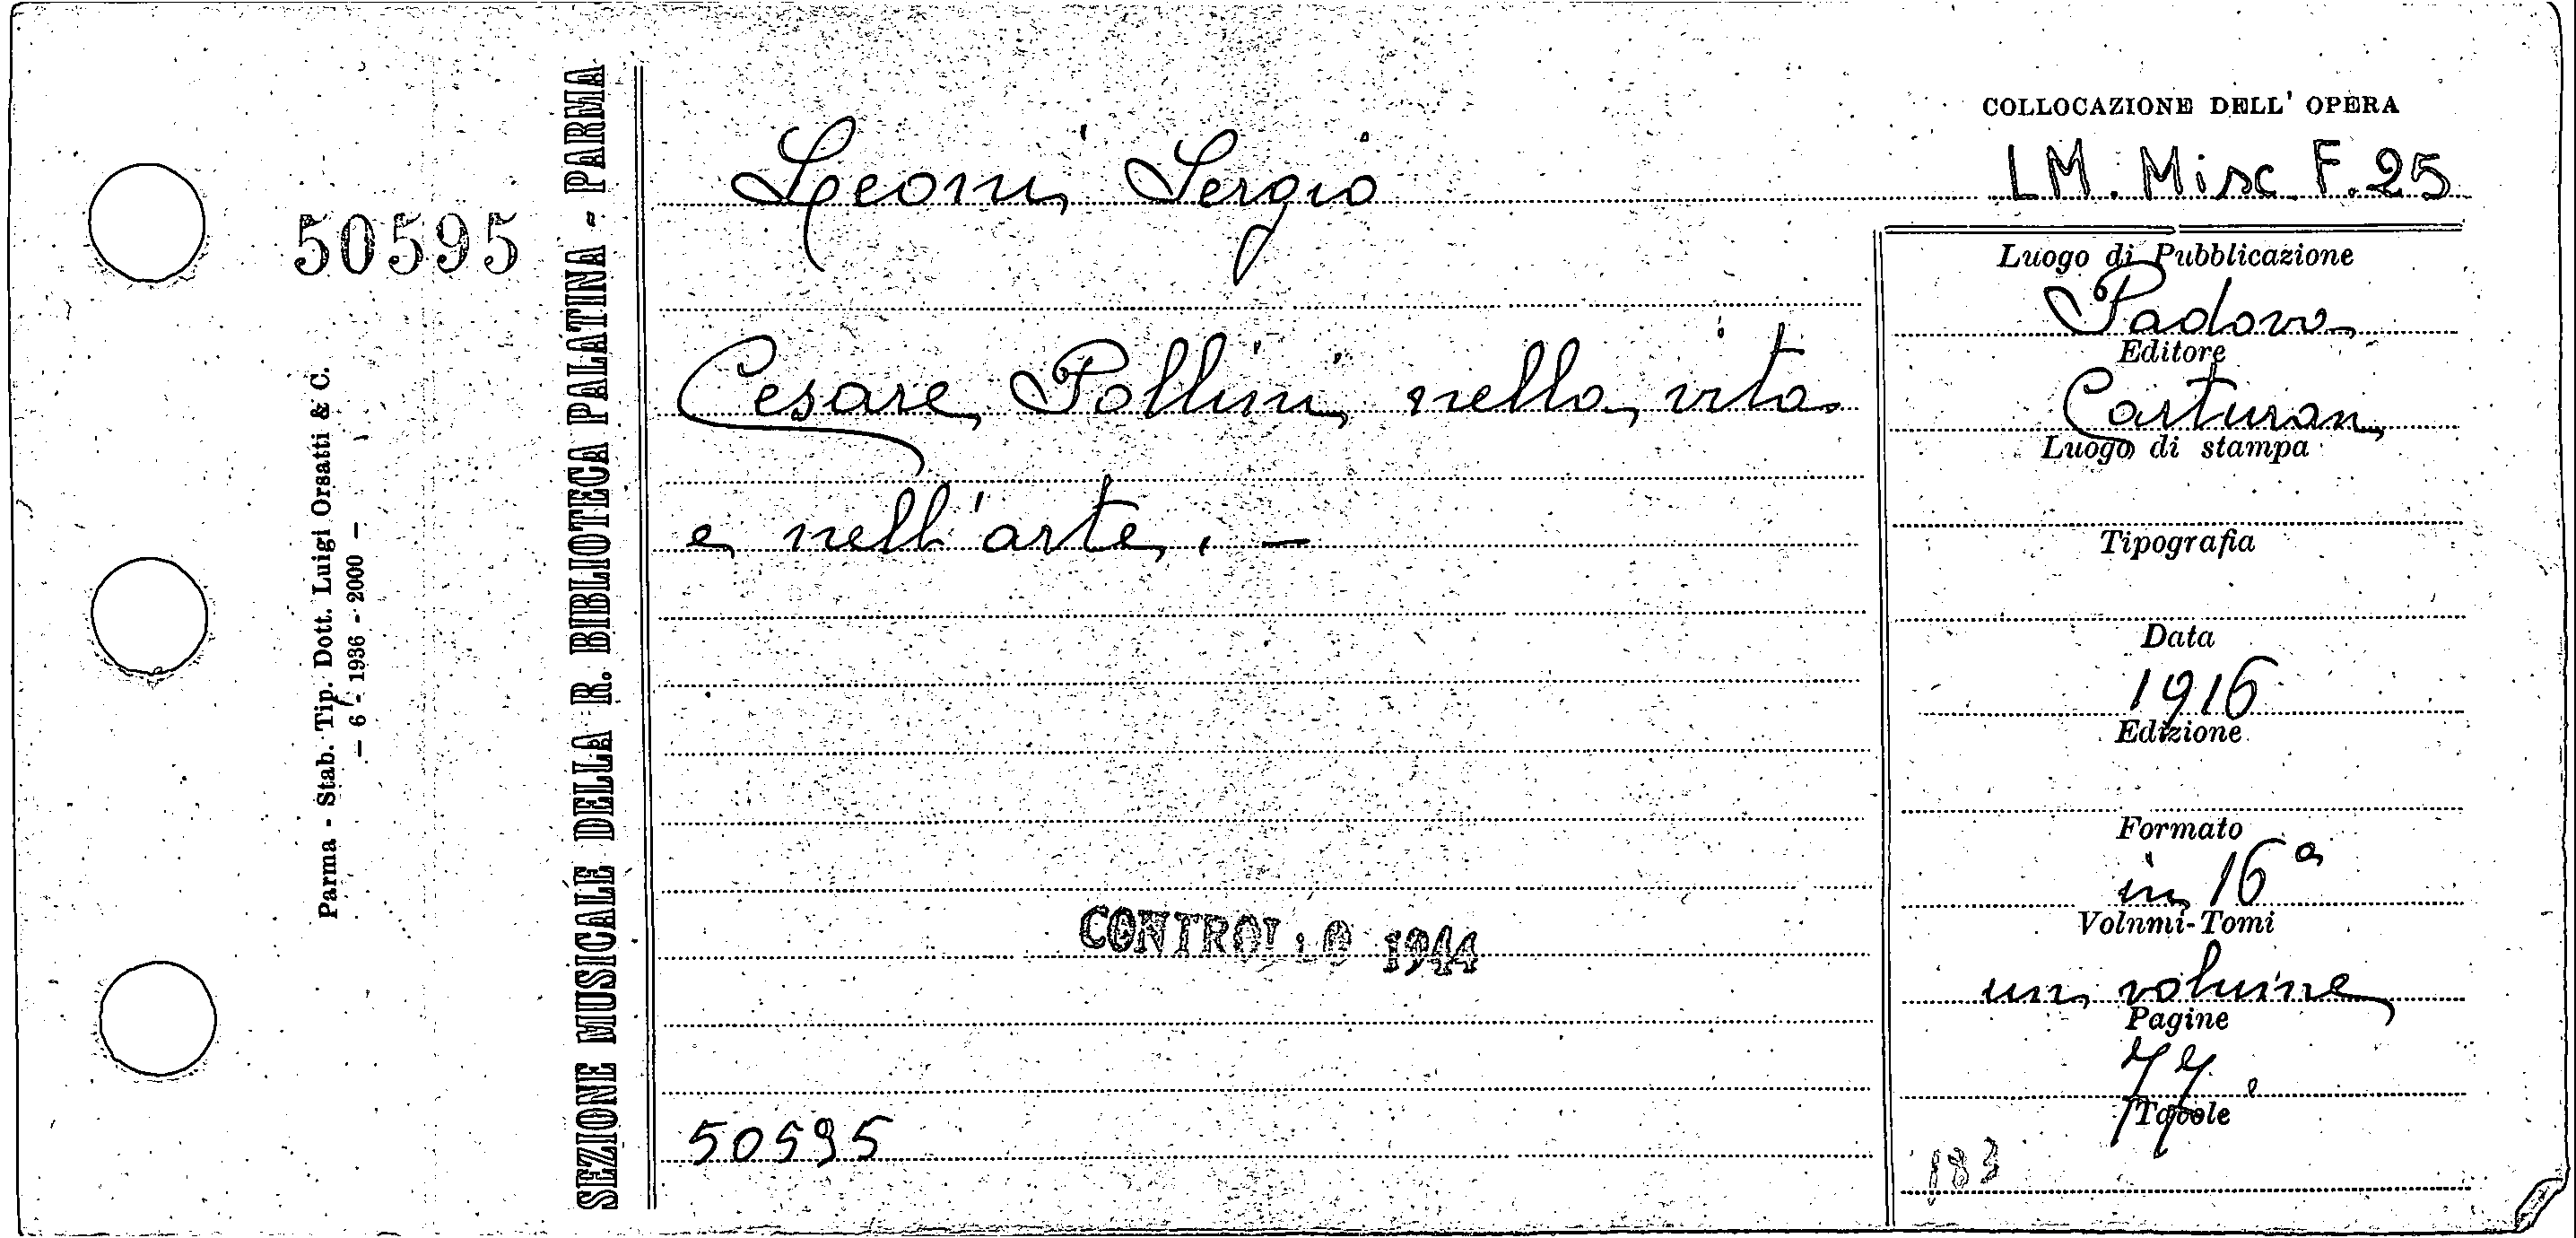 50595
Parma - Stab. Tip. Dott. Luigi Orsatti & C.
— 6 - 1936 - 2000 —
SEZIONE MUSICALE DELLA R. BIBLIOTECA PALATINA - PARMA
Leoni Sergio
Cesare Pollini nella vita
e nell'arte. —
CONTROLLO 1944
50595
COLLOCAZIONE DELL' OPERA
LM. Misc F. 25
Luogo di Pubblicazione
Padova
Editore
Carturan
Luogo di stampa
Tipografia
Data
1916
Edizione
Formato
in 16º
Volnmi-Tomi
un volume
Pagine
77.
Tavole
183